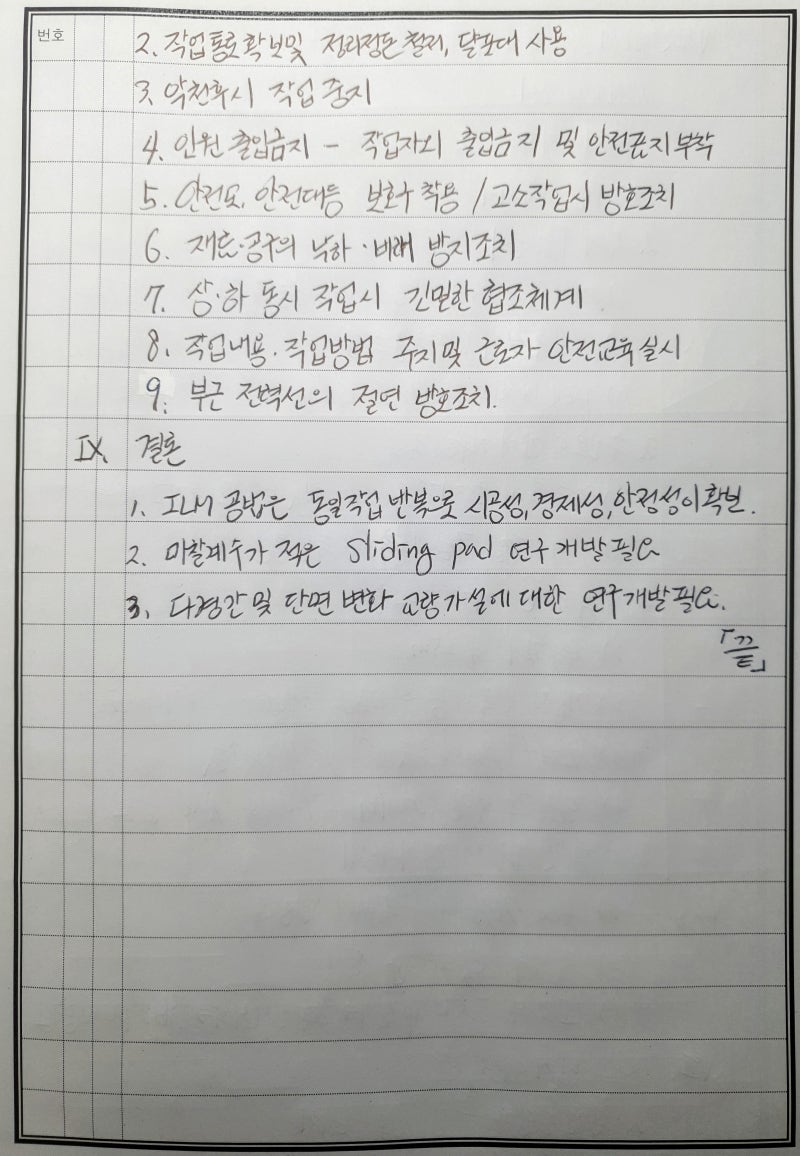 번호
2. 작업통로 확보 및 정리정돈 철저, 달포대 사용
3. 악천후시 작업 중지
4. 인원 출입금지 - 작업자외 출입금지 및 안전표지 부착
5. 안전모, 안전대등 보호구 착용 / 고소작업시 방호조치
6. 재료·공구의 낙하·비래 방지조치
7. 상·하 동시 작업시 긴밀한 협조체계
8. 작업내용·작업방법 주지 및 근로자 안전교육 실시
9. 부근 전력선의 절연 방호조치.
IX. 결론
1. ILM 공법은 동일작업 반복으로 시공성, 경제성, 안정성이 확보.
2. 마찰계수가 적은 Sliding pad 연구 개발 필요
3. 다경간 및 단면 변화 교량가설에 대한 연구개발 필요.
「끝」